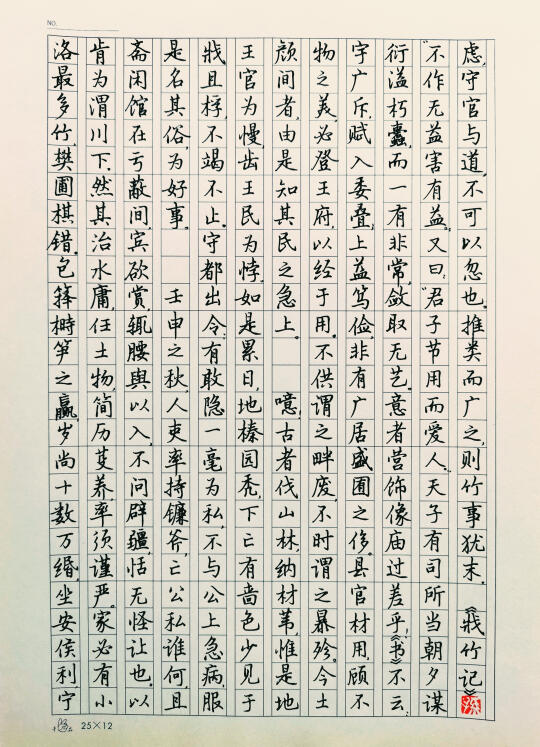 NO.
洛最多竹,樊圃棋错。包箨榯笋之赢,岁尚十数万缗,坐安侯利,宁
肯为渭川下。然其治水庸,任土物,简历芟养,率须谨严。家必有小
斋闲馆在亏蔽间,宾欲赏,辄腰舆以入,不问辟疆,恬无怪让也。以
是名其俗,为好事。 壬申之秋,人吏率持镰斧,亡公私谁何,且
戕且桴,不竭不止。守都出令:有敢隐一毫为私,不与公上急病,服
王官为慢,齿王民为悖。如是累日,地榛园秃,下亡有啬色少见于
颜间者,由是知其民之急上。 噫!古者伐山林,纳材苇,惟是地
物之美,必登王府,以经于用。不供谓之畔废,不时谓之暴殄。今土
宇广斥,赋入委叠;上益笃俭,非有广居盛囿之侈。县官材用,顾不
衍溢朽蠹,而一有非常,敛取无艺。意者营饰像庙过差乎!《书》不云:
“不作无益害有益。”又曰:“君子节用而爱人。”天子有司所当朝夕谋
虑,守官与道,不可以忽也。推类而广之,则竹事犹末。《戕竹记》
25×12